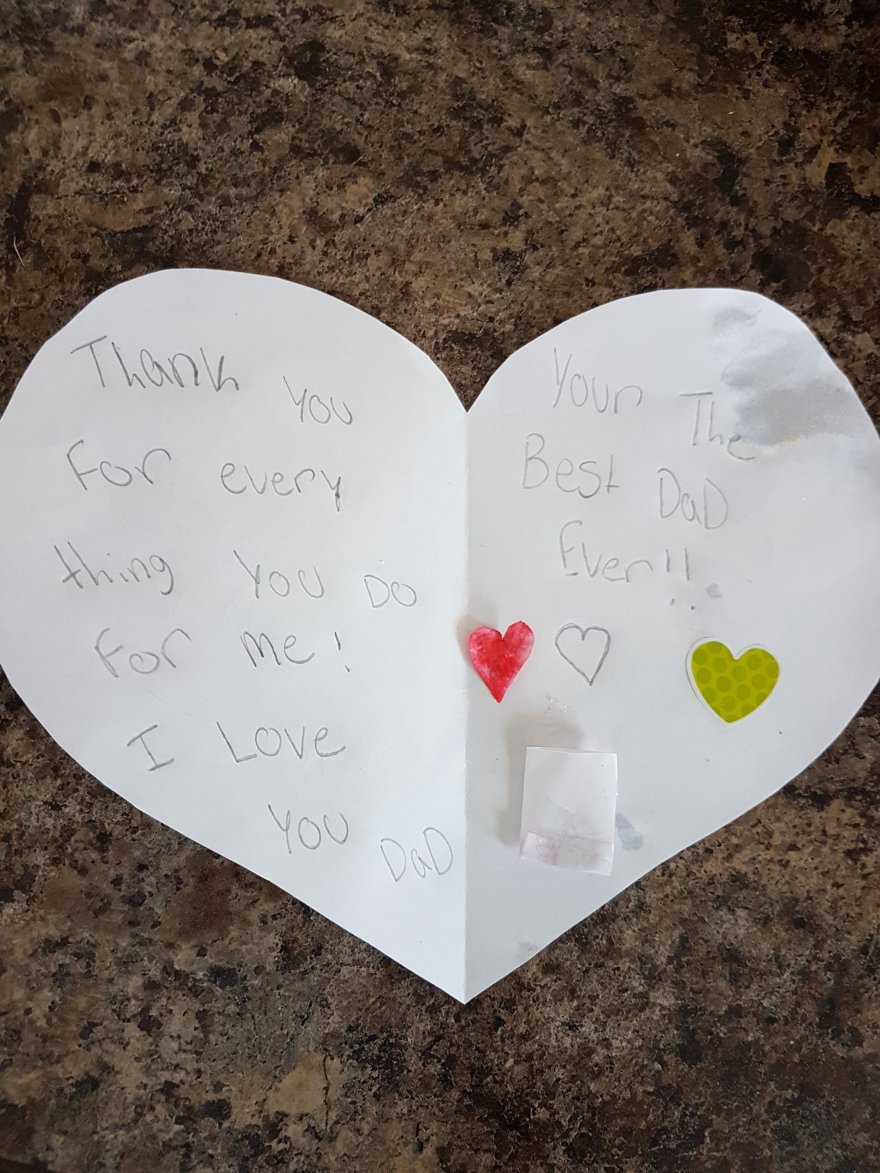 Thank you
For every
thing you Do
For me!
I Love
you DaD
Your The
Best DaD
Ever!!